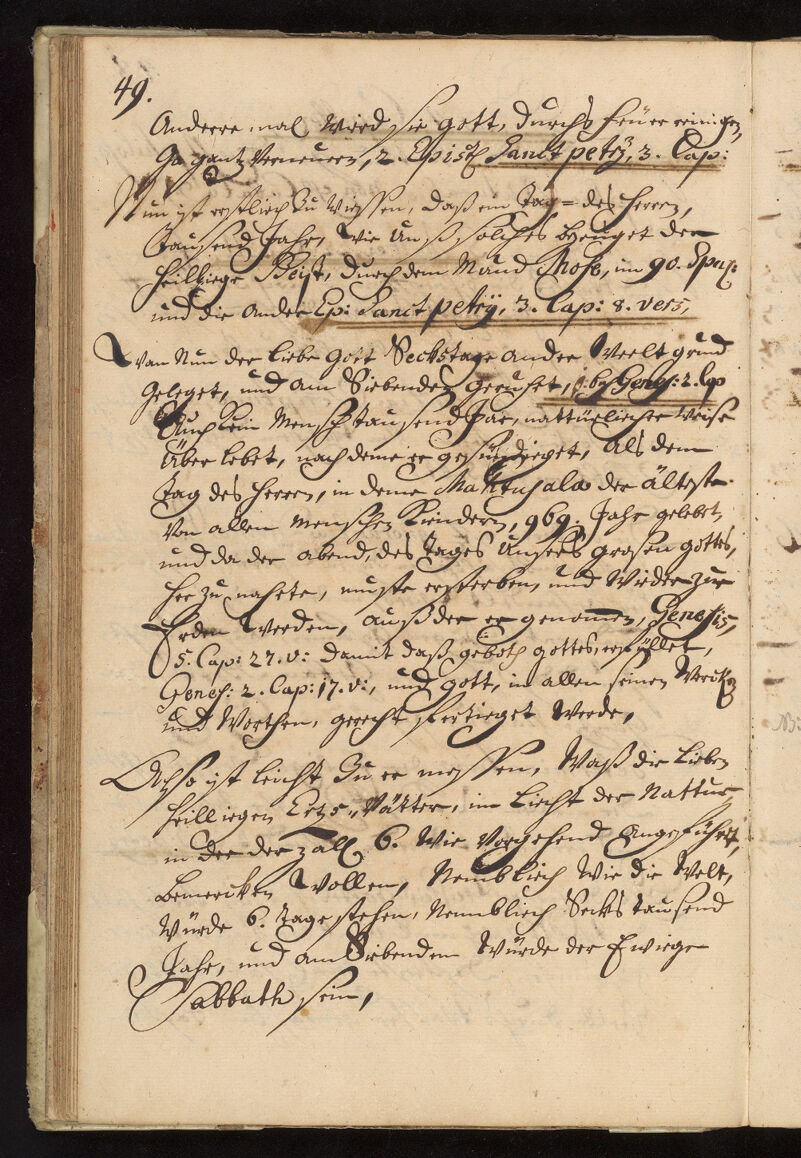 49.
Anderre mal Wird sie gott, durchs feüer reinigen,
Ja gantz Verneuern, 2. Epist Sanct petrÿ, 3. Cap:
Nun ist erstlich Zu Wissen, daß ein Tag = des Herren,
Tausend Jahr, Wie Unß solches bezeuget der
Heillige Geist, durch dem Mund Mose, im 90. Psal:
und die Ander Ep: Sanct petrÿ, 3. Cap: 8. vers,
Wan Nun der liebe Gott Sechstage an der Weelt grund
geleget, und am Siebenden geruhet, Genes: 2. Cap
Auch kein Mensch tausend Jar, nattürlicher Weise
Über lebet, nach deme er gesündieget, als dem
Tag des Herren, in deme Mattusala der älteste
Von allen Menschen Kiendern, 969. Jahr gelebet,
und da der abend, des Tages Unsers grosen gottes,
her zu nahete, muste ersterben, und Wieder zur
Erden Werden, auß der er genomen, Genesis,
5. Cap: 27. v: damit daß geboth gottes, erfüllet,
Genes: 2. Cap: 17. v:, und gott, in allen seinen Wercken
und Worthen, gerecht fertieget Werde,
Also ist leicht Zu er messen, Waß die lieben
Heilliegen Ertz = Vätter, im Liecht der Nattur
in der der zall 6. Wie Vorgehend Angeführt,
bemercken Wollen, Nembliech Wie die Welt,
Würde 6. Tage stehen, Nembliech Sechs Tausend
Jahr, und am Siebenden Würde der Ewiege
Sabbath sein,